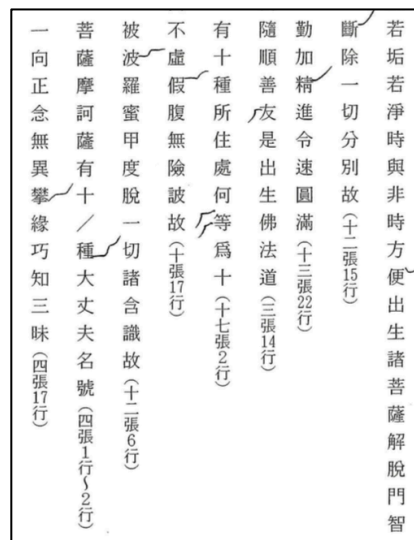 若垢若淨時與非時方便出生諸菩薩解脫門智
斷除一切分別故(十二張15行)
勤加精進令速圓滿(十三張22行)
隨順善友是出生佛法道(三張14行)
有十種所住處何等爲十(十七張2行)
不虛假腹無險詖故(十張17行)
被波羅蜜甲度脫一切諸含識故(十二張6行)
菩薩摩訶薩有十/種大丈夫名號(四張1行~2行)
一向正念無異攀緣巧知三昧(四張17行)